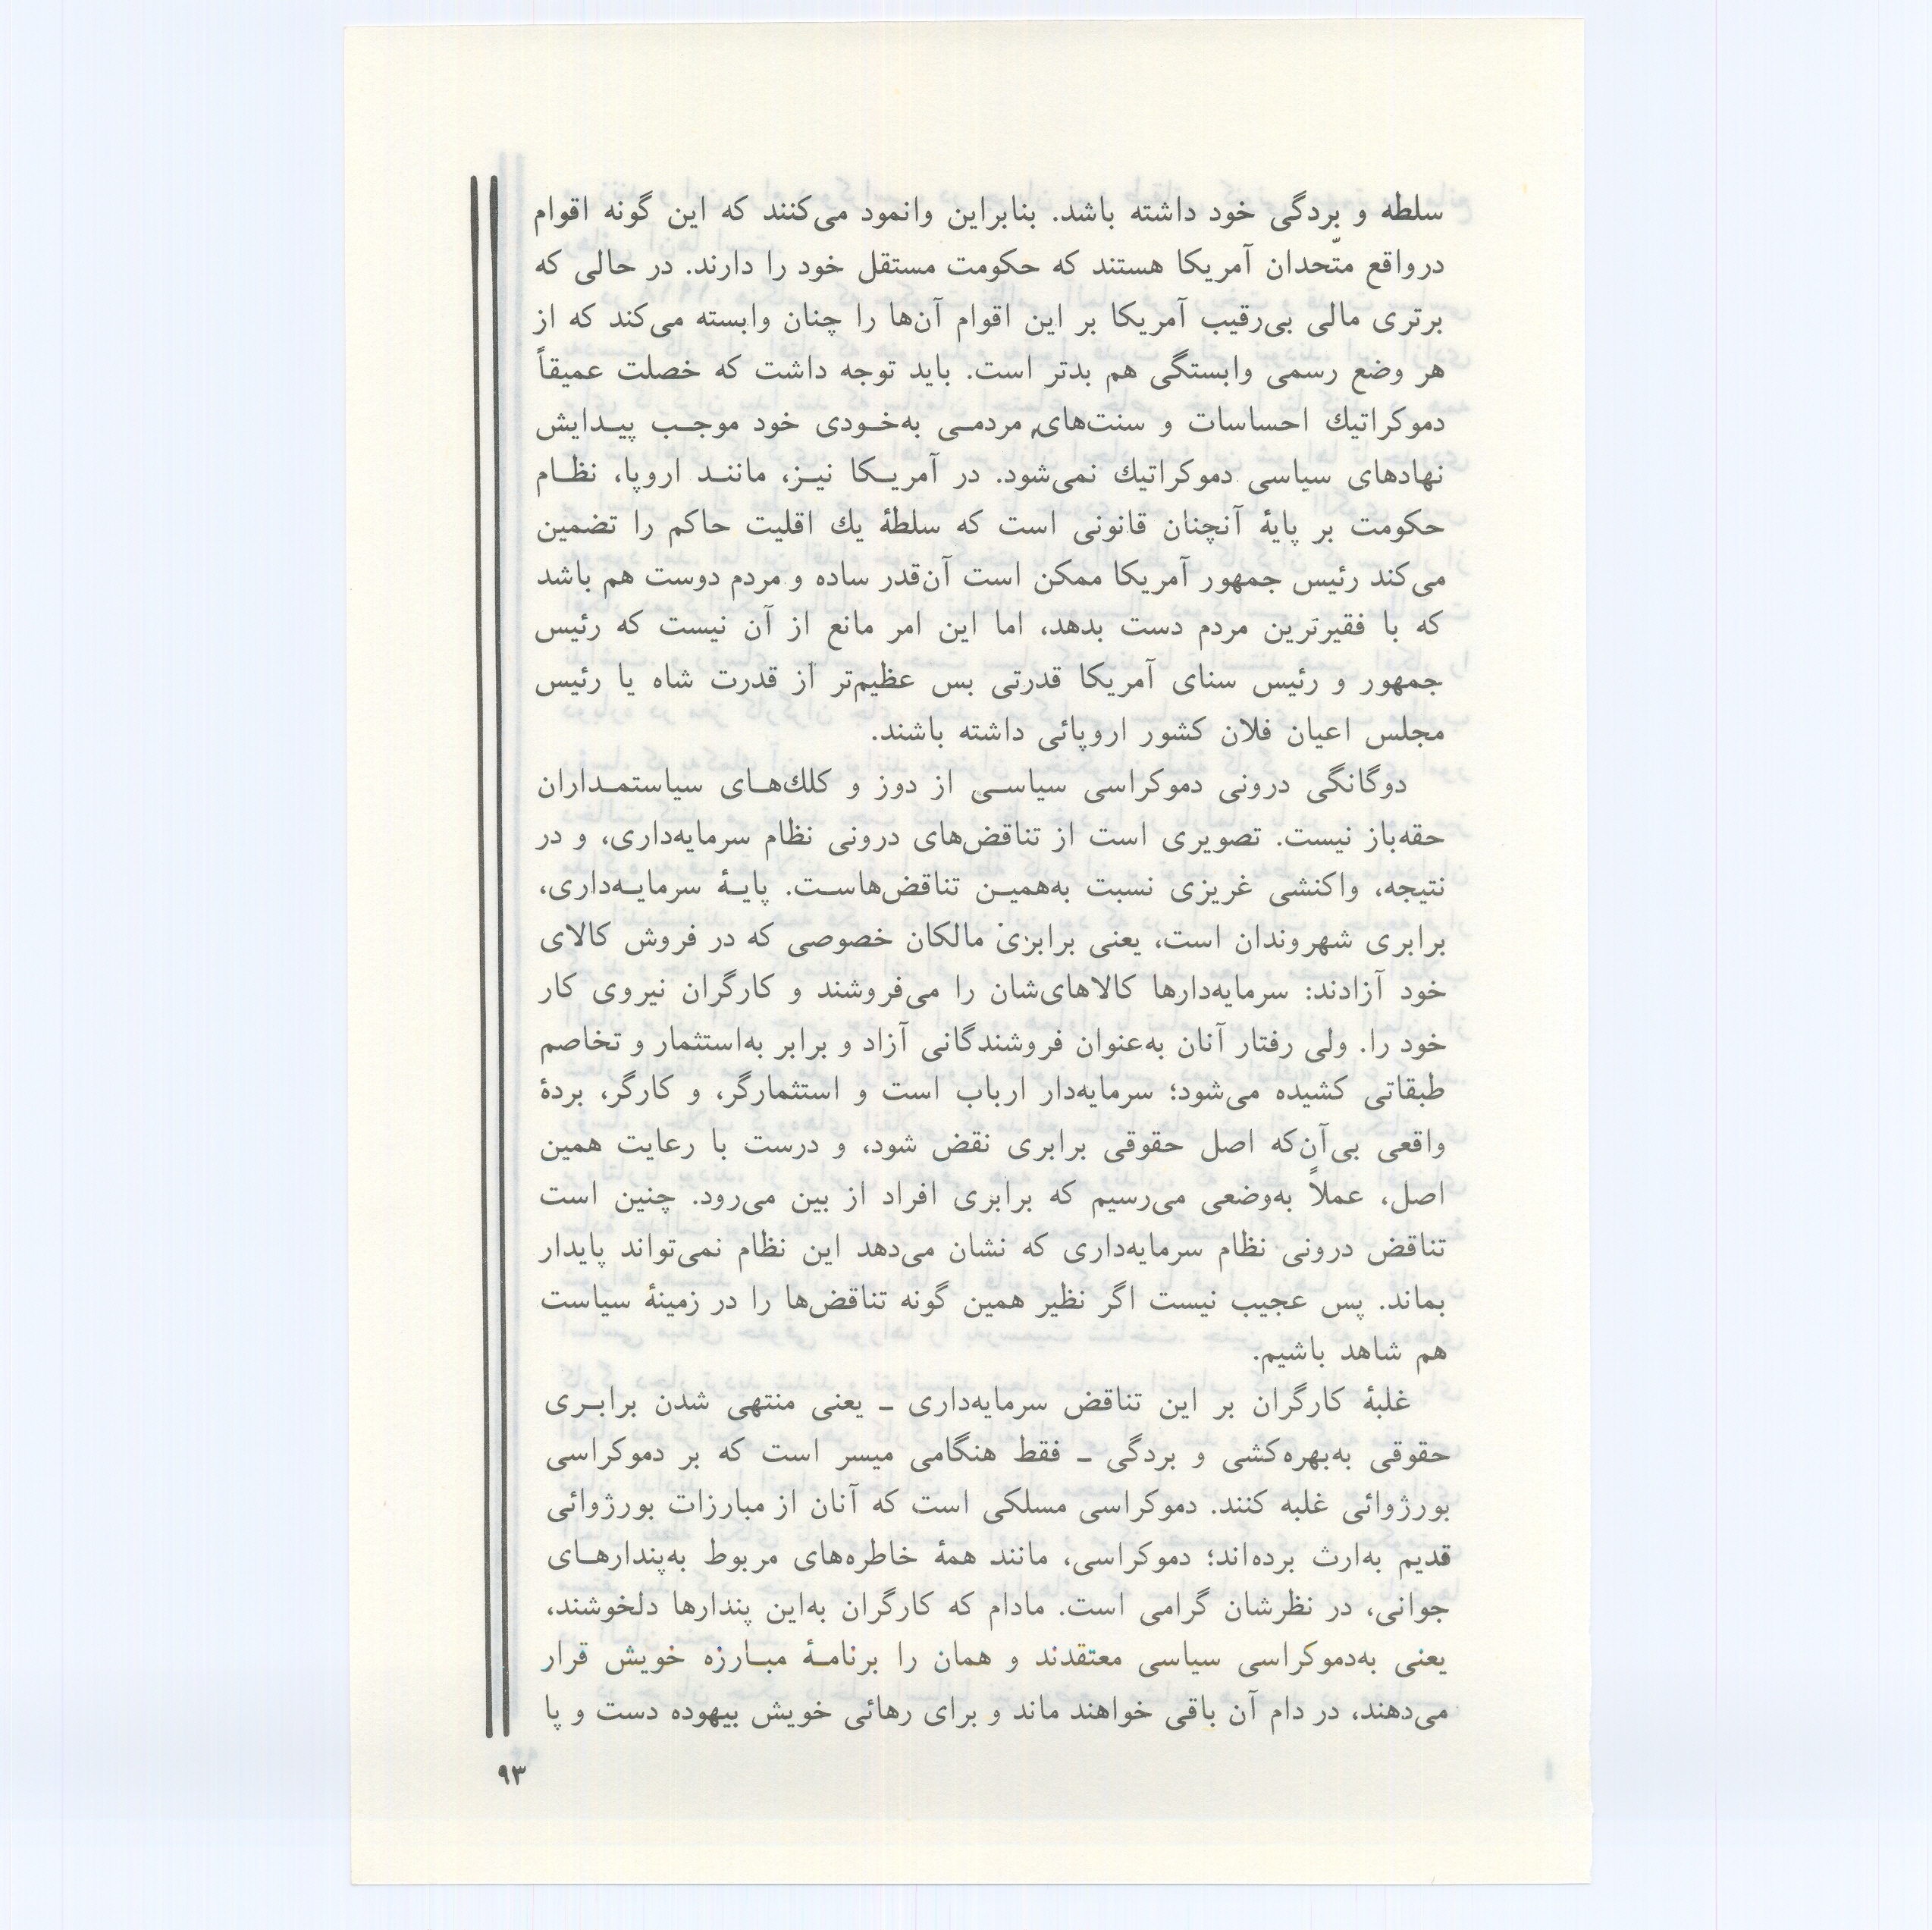 سلطه و بردگی خود داشته باشد. بنابراین وانمود می‌کنند که این گونه اقوام
درواقع متّحدان آمریکا هستند که حکومت مستقل خود را دارند. در حالی که
برتری مالی بی‌رقیب آمریکا بر این اقوام آن‌ها را چنان وابسته می‌کند که از
هر وضع رسمی وابستگی هم بدتر است. باید توجه داشت که خصلت عمیقاً
دموکراتیك احساسات و سنت‌های مردمی به‌خودی خود موجب پیدایش
نهادهای سیاسی دموکراتیك نمی‌شود. در آمریکا نیز، مانند اروپا، نظام
حکومت بر پایهٔ آنچنان قانونی است که سلطهٔ یك اقلیت حاکم را تضمین
می‌کند رئیس جمهور آمریکا ممکن است آن‌قدر ساده و مردم دوست هم باشد
که با فقیرترین مردم دست بدهد، اما این امر مانع از آن نیست که رئیس
جمهور و رئیس سنای آمریکا قدرتی بس عظیم‌تر از قدرت شاه یا رئیس
مجلس اعیان فلان کشور اروپائی داشته باشند.
دوگانگی درونی دموکراسی سیاسی از دوز و کلك‌های سیاستمداران
حقه‌باز نیست. تصویری است از تناقض‌های درونی نظام سرمایه‌داری، و در
نتیجه، واکنشی غریزی نسبت به‌همین تناقض‌هاست. پایهٔ سرمایه‌داری،
برابری شهروندان است، یعنی برابری مالکان خصوصی که در فروش کالای
خود آزادند: سرمایه‌دارها کالاهای‌شان را می‌فروشند و کارگران نیروی کار
خود را. ولی رفتار آنان به‌عنوان فروشندگانی آزاد و برابر به‌استثمار و تخاصم
طبقاتی کشیده می‌شود؛ سرمایه‌دار ارباب است و استثمارگر، و کارگر، بردهٔ
واقعی بی‌آن‌که اصل حقوقی برابری نقض شود، و درست با رعایت همین
اصل، عملاً به‌وضعی می‌رسیم که برابری افراد از بین می‌رود. چنین است
تناقض درونی نظام سرمایه‌داری که نشان می‌دهد این نظام نمی‌تواند پایدار
بماند. پس عجیب نیست اگر نظیر همین گونه تناقض‌ها را در زمینهٔ سیاست
هم شاهد باشیم.
غلبهٔ کارگران بر این تناقض سرمایه‌داری ـ یعنی منتهی شدن برابری
حقوقی به‌بهره‌کشی و بردگی ـ فقط هنگامی میسر است که بر دموکراسی
بورژوائی غلبه کنند. دموکراسی مسلکی است که آنان از مبارزات بورژوائی
قدیم به‌ارث برده‌اند؛ دموکراسی، مانند همهٔ خاطره‌های مربوط به‌پندارهای
جوانی، در نظرشان گرامی است. مادام که کارگران به‌این پندارها دلخوشند،
یعنی به‌دموکراسی سیاسی معتقدند و همان را برنامهٔ مبارزه خویش قرار
می‌دهند، در دام آن باقی خواهند ماند و برای رهائی خویش بیهوده دست و پا
۹۳